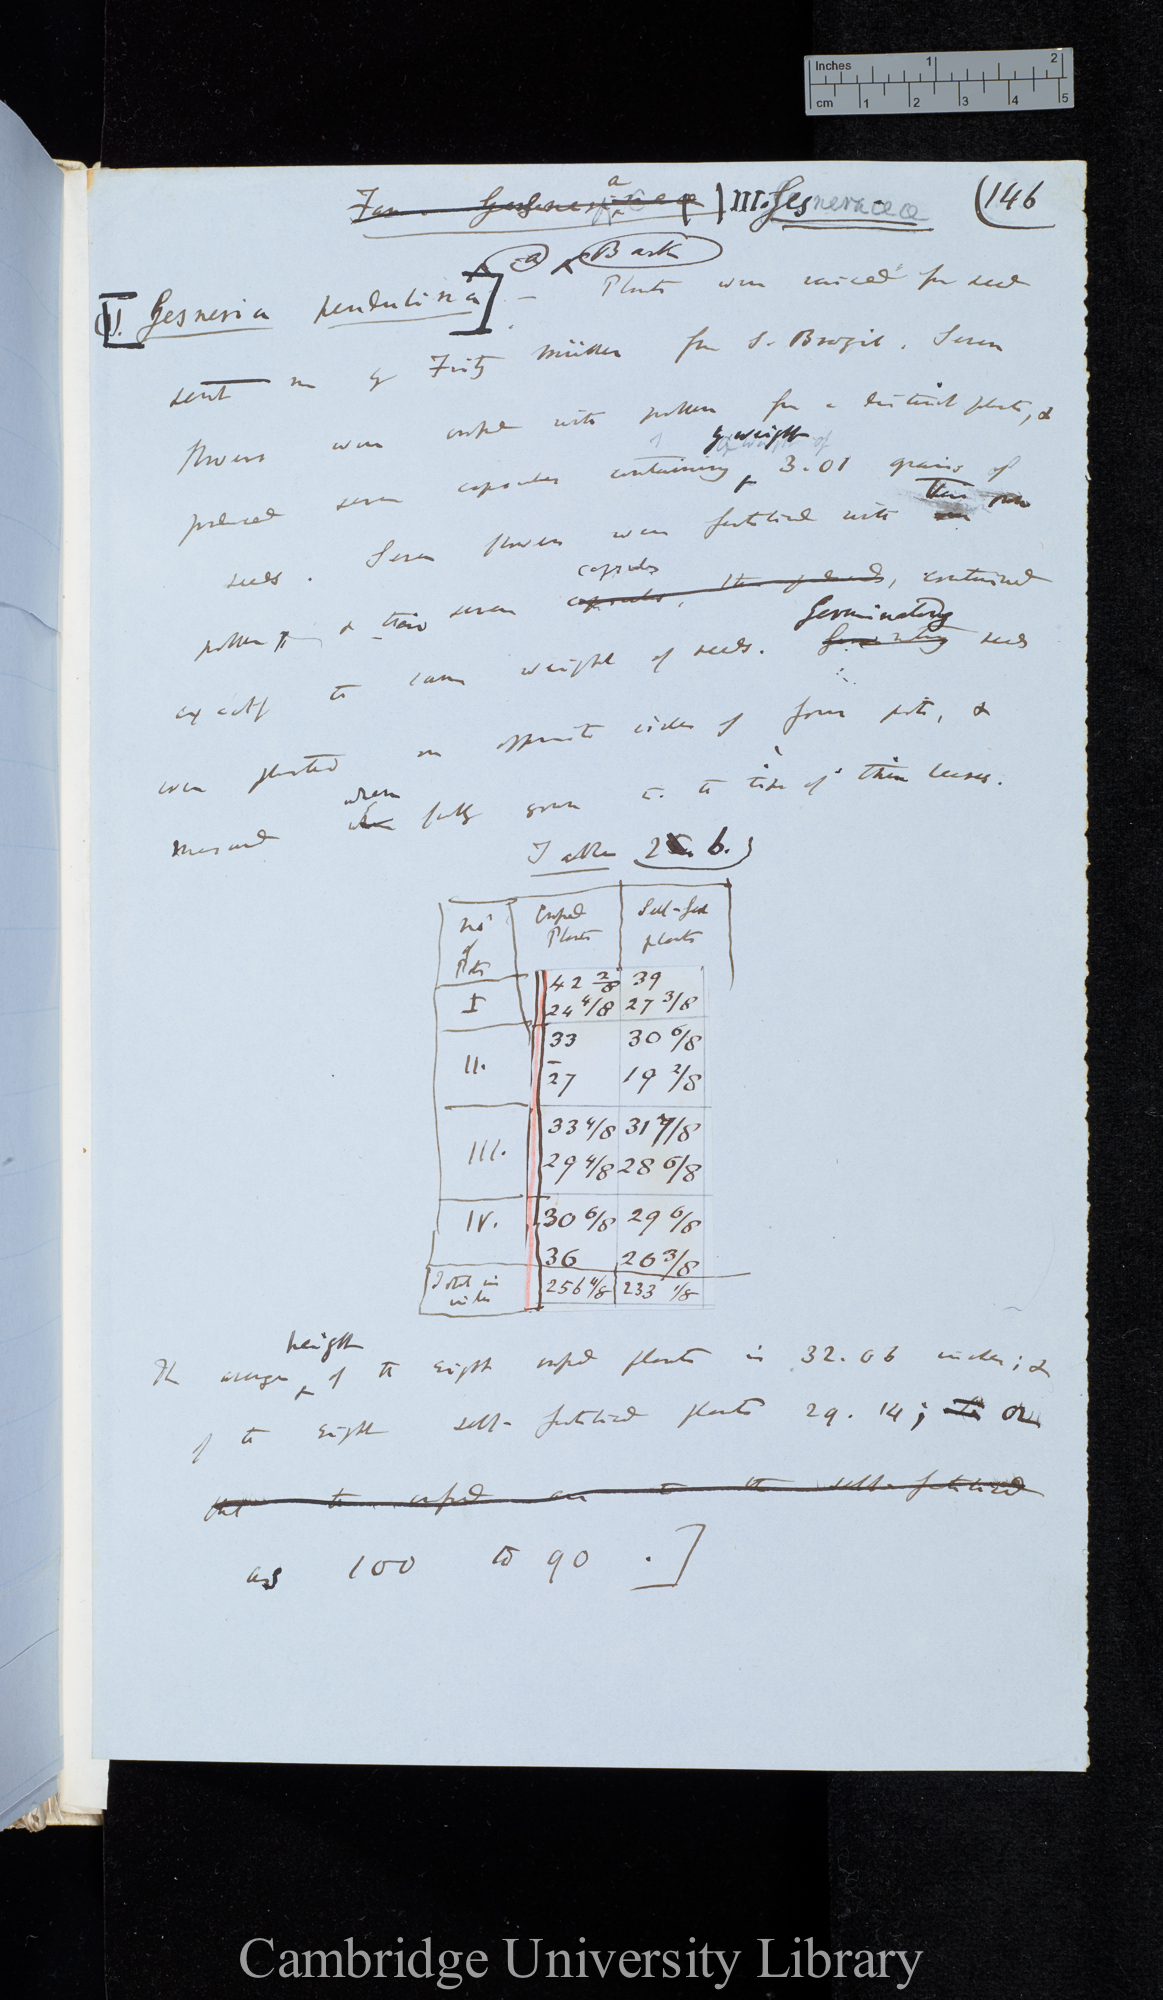 Inches 1 2
cm 1 2 3 4 5
Fam. Gesneraceæ III. Gesneraceæ (146
(a) Back
V. Gesneria pendulina] – Plants were raised fr seed
sent me by Fritz Müller fr S. Brazil. Seven
flowers were crossed with pollen fr a distinct plant, &
by weight of
produced seven capsules containing 3.01 grains of
seeds. Seven flowers were fertilised with their own
capsules
pollen & their seven capsules, contained
Germinating
exactly the same weight of seeds. Germinating seeds
were planted on opposite sides of four pots, &
when
measured when fully grown to the tips of their leaves.
Table 26.
No. of Pots Crossed Plants Self-fert plants
I 42 2/8 39
24 4/8 27 3/8
II. 33 30 6/8
27 19 2/8
III. 33 4/8 31 7/8
29 4/8 28 6/8
IV. 30 6/8 29 6/8
36 26 3/8
Total in inches 256 4/8 233 1/8
height
The average of the eight crossed plants is 32.06 inches; &
of the eight self-fertilised plants 29.14; or
that the crossed are to the self-fertilised
as 100 to 90.]
Cambridge University Library